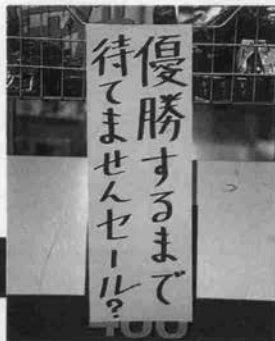 優勝するまで
待てませんセール?
100